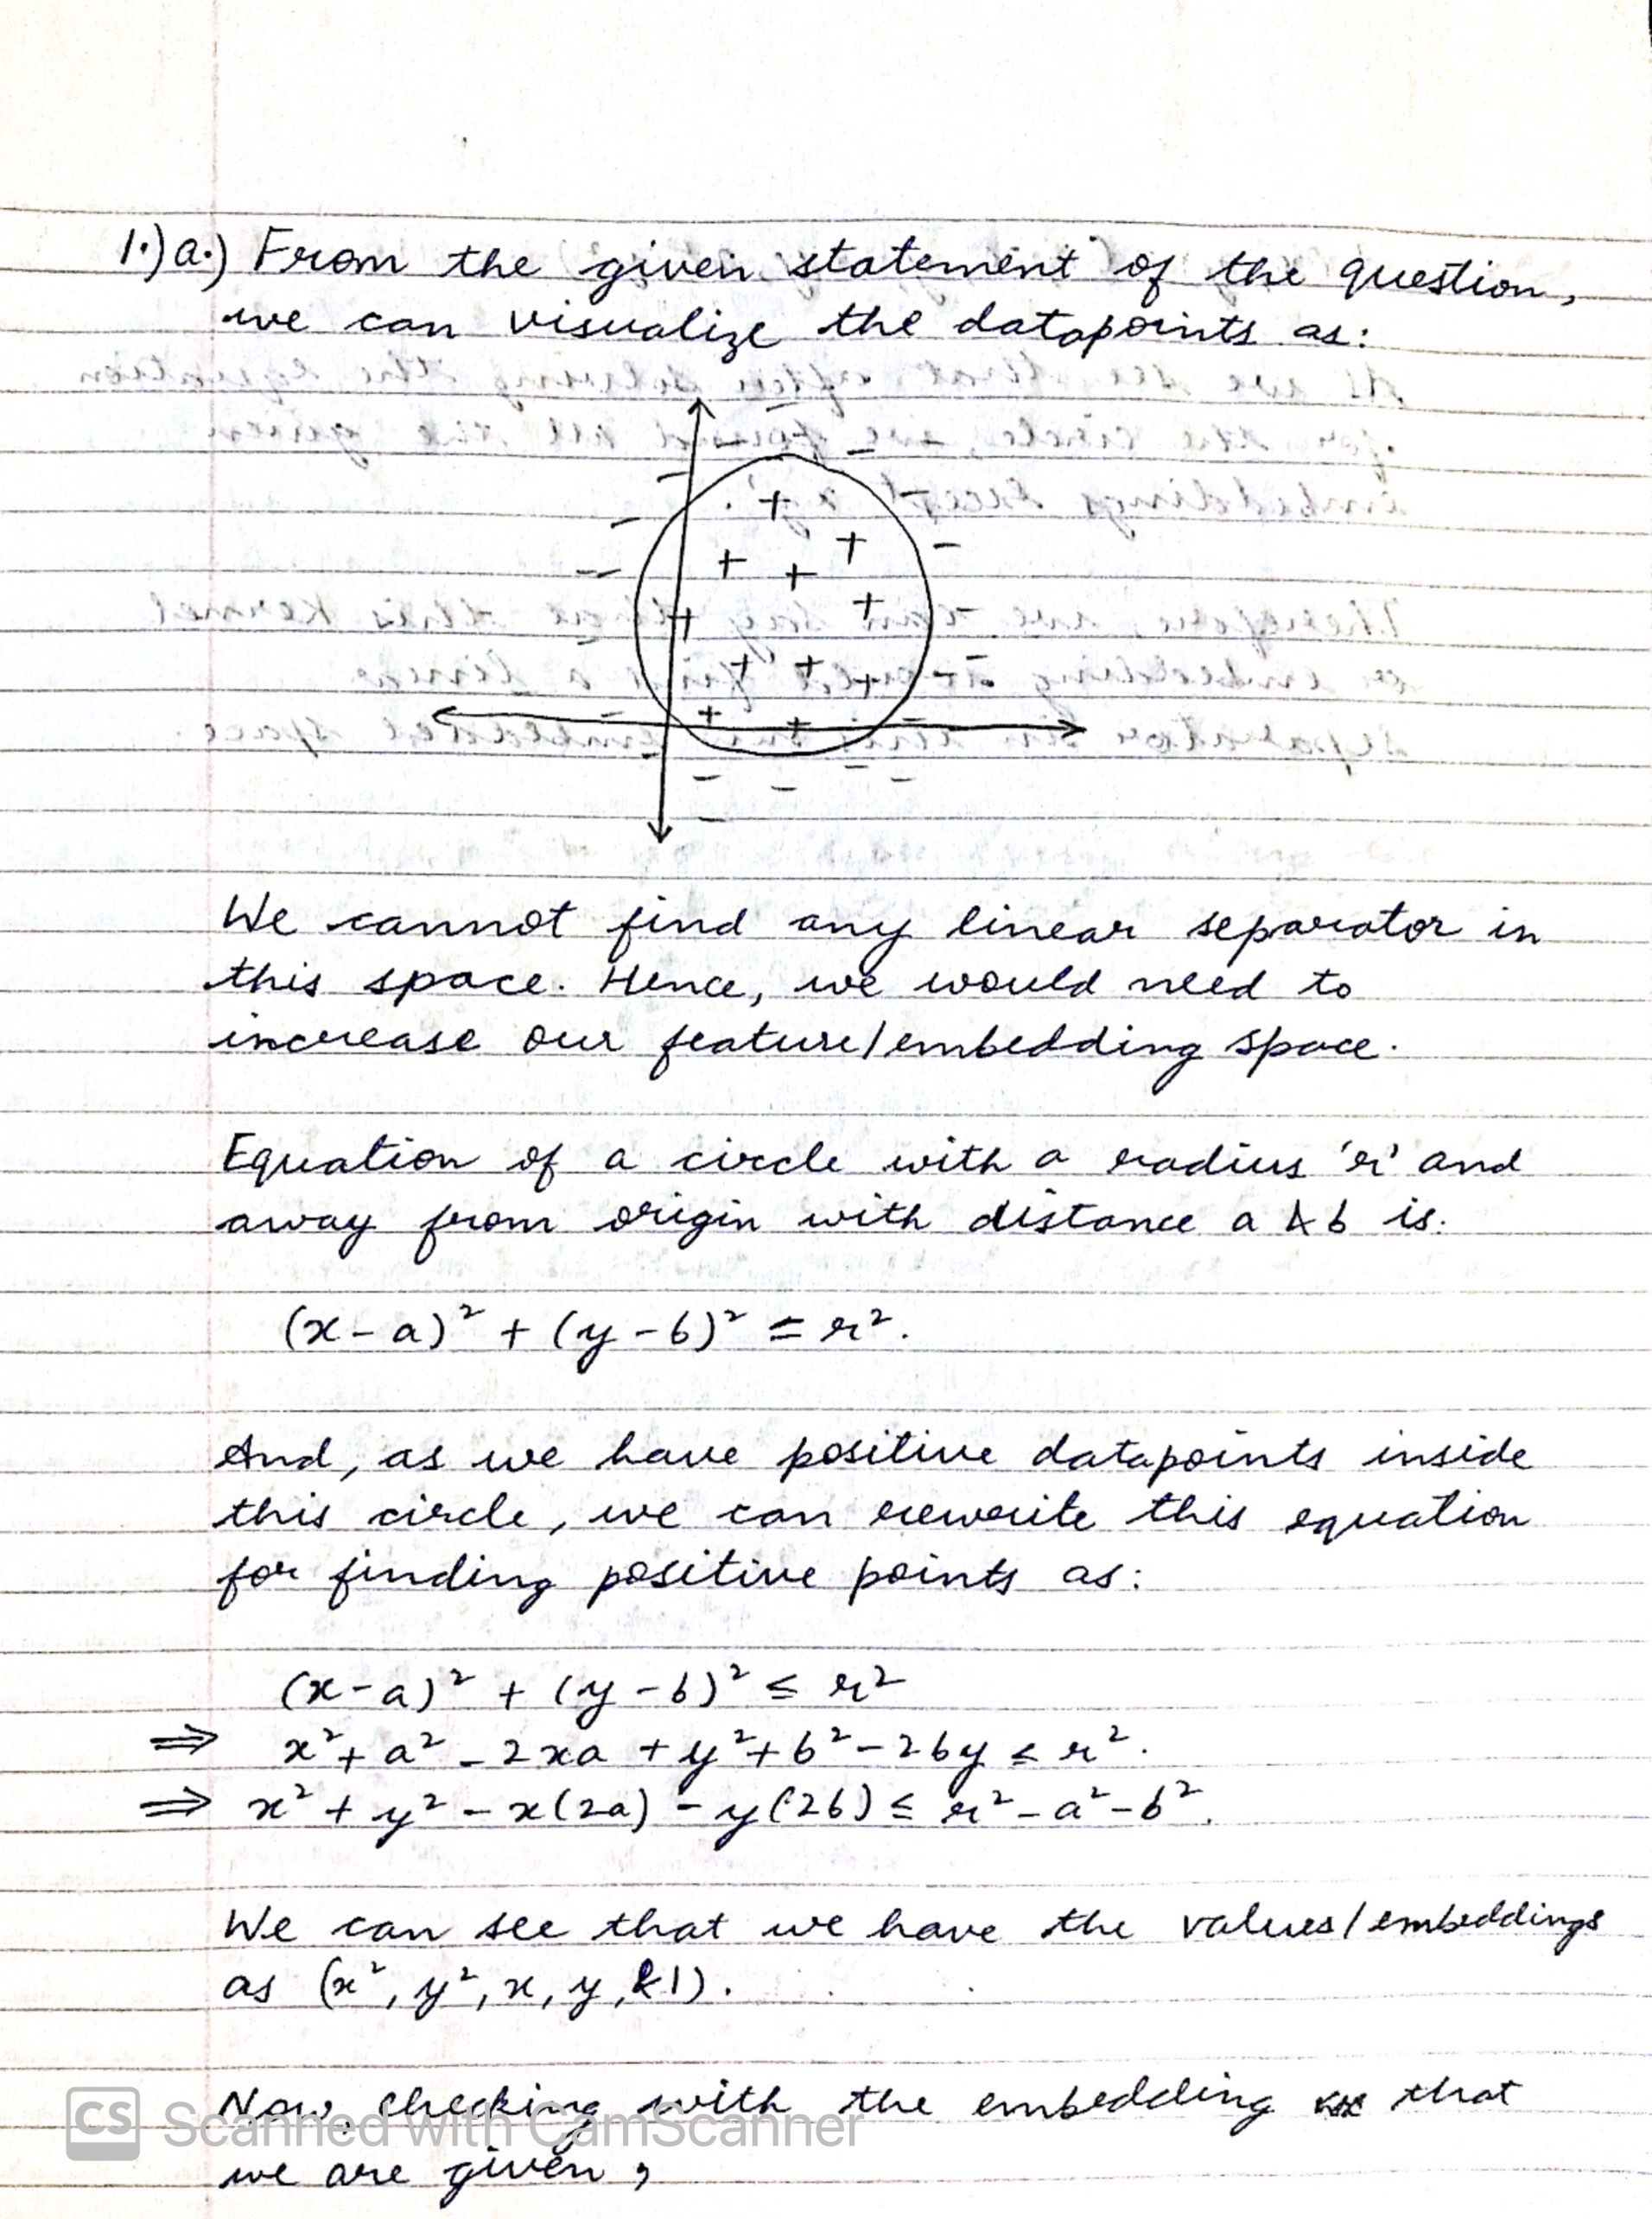 1.) a.) From the given statement of the question,
we can visualize the datapoints as:
We cannot find any linear separator in
this space. Hence, we would need to
increase our feature/embedding space.
Equation of a circle with a radius 'r' and
away from origin with distance a & b is:
(x-a)² + (y-b)² = r².
And, as we have positive datapoints inside
this circle, we can rewrite this equation
for finding positive points as:
(x-a)² + (y-b)² ≤ r²
⇒ x² + a² - 2xa + y² + b² - 2by ≤ r².
⇒ x² + y² - x(2a) - y(2b) ≤ r² - a² - b².
We can see that we have the values/embeddings
as (x², y², x, y, & 1).
Now, checking with the embedding that
we are given,
CS Scanned with CamScanner